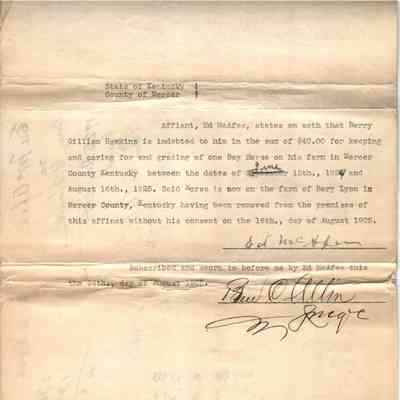 State of Kentucky :
County of Mercer :
Affiant, Ed McAfee, states on oath that Berry
Gilliam Hawkins is indebted to him in the sum of $40.00 for keeping
and caring for and grazing of one Bay Horse on his farm in Mercer
County Kentucky between the dates of June 15th., 1924 and
August 16th., 1925. Said Horse is now on the farm of Lynn in
Mercer County, Kentucky having been removed from the premises of
this affiant without his consent on the 16th., day of August 1925.
Ed McAfee
Subscribed and sworn to before me by Ed McAfee this
the day of August 1925.
Ben C Allin
Judge